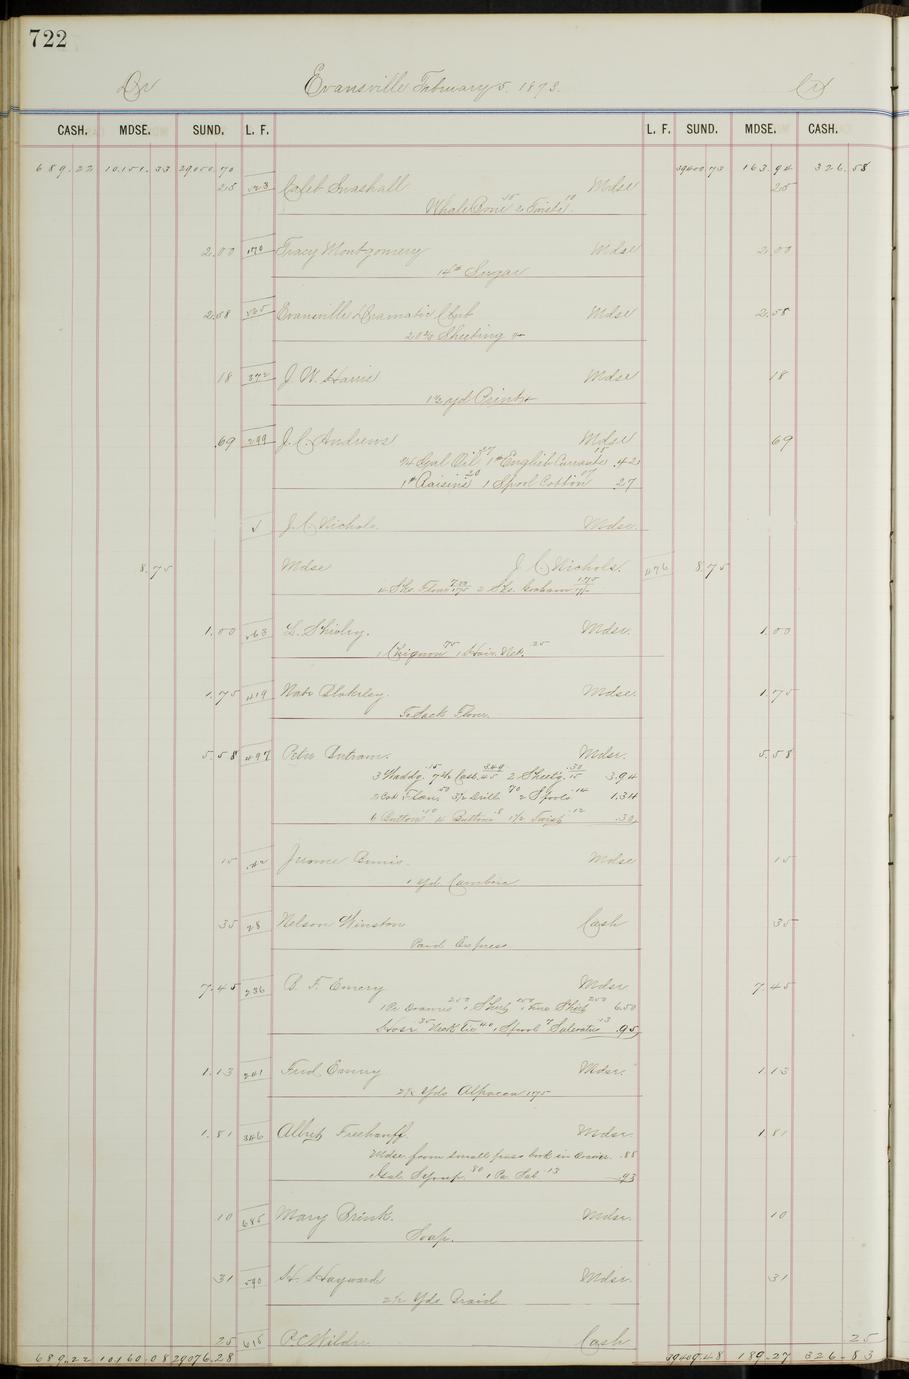 722
Dr Evansville February 5. 1873. Cr
CASH. MDSE. SUND. L. F. L. F. SUND. MDSE. CASH.
689.22 10151.33 29050.70 39400.73 163.94 326.58
25 523 Caleb Mdse 25
Whale Bone 15 2 Twists 10
2.00 170 Tracy Montgomery Mdse 2.00
14# Sugar
2.58 525 Evansville Dramatic Club Mdse 2.58
Sheeting
18 372 J. W. Harris Mdse 18
1½ yd Print
69 299 J. C. Andrews Mdse 69
¾ Gal Oil 27 1# English Currants 15 .42
1# Raisins 20 1 Spool Cotton 07 27
√ J. C. Nichols Mdse.
8.75 Mdse J C Nichols. 476 8.75
4 Sks. Flour 2 Sks. Graham
1.00 63 L. Shivley. Mdse. 1.00
1 Chignon 75 1 Hair Net. 25
1.75 419 Nate Blakeley. Mdse. 1.75
Sack Flour.
5.58 497 Mdse. 5.58
3 Waddg. 15 2 Sheetg. 30 3.94
Flan 50 3½ Drill 70 2 Spools 14 1.34
6 Buttons 10 4 Buttons 8 1½ Twist 12 .30
15 42 Jerome Mdse 15
1 yd. Cambric
35 28 Nelson Winston Cash 35
Paid Express
7.45 236 B. F. Emery Mdse 7.45
1 Pr Drawers 200 1 Shirt 1 Fine Shirt 200 6.50
Hose 35 Neck Tie 40 1 Spool 7 Saleratus 13 .95
1.13 241 Fred Emery Mdse. 1.13
Yds Alpacca
1.81 346 Albert Mdse. 1.81
Mdse from small pass book in drawer. .88
1 Gal. Syrup. 80 1 Pa. Sal. 13 .93
10 685 Mary Brink. Mdse. 10
Soap.
31 590 H. Hayward Mdse. 31
2½ Yds Braid
25 618 P. C. Wilder Cash 25
689.22 10160.08 29076.28 39409.48 189.27 326.83